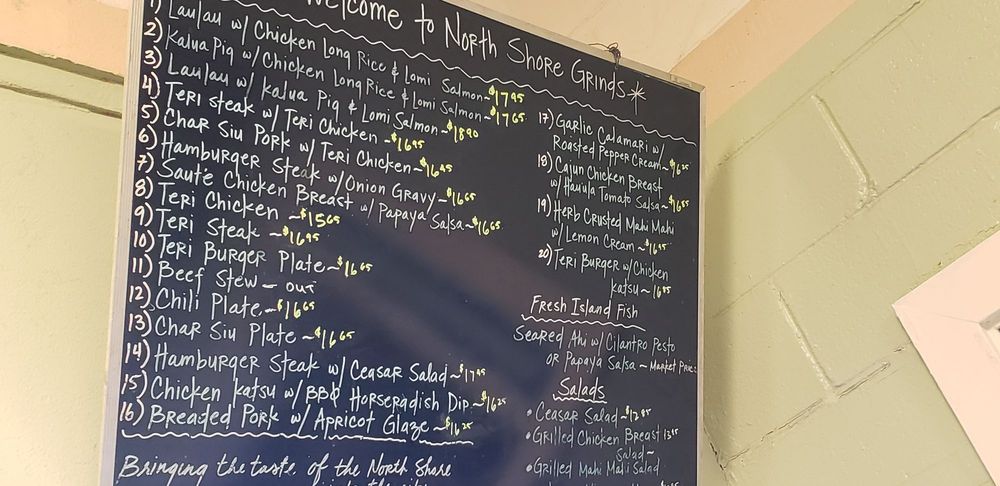 Welcome to North Shore Grinds
1) Laulau w/ Chicken Long Rice & Lomi Salmon ~ $17 95
2) Kalua Pig w/ Chicken Long Rice & Lomi Salmon ~ $17 65
3) Laulau w/ Kalua Pig & Lomi Salmon ~ $18 90
4) Teri Steak w/ Teri Chicken ~ $16 95
5) Char Siu Pork w/ Teri Chicken ~ $16 45
6) Hamburger Steak w/ Onion Gravy ~ $16 65
7) Sauté Chicken Breast w/ Papaya Salsa ~ $16 65
8) Teri Chicken ~ $15 65
9) Teri Steak ~ $16 95
10) Teri Burger Plate ~ $16 65
11) Beef Stew – out
12) Chili Plate ~ $16 65
13) Char Siu Plate ~ $16 65
14) Hamburger Steak w/ Ceasar Salad ~ $17 45
15) Chicken Katsu w/ BBQ Horseradish Dip ~ $16 25
16) Breaded Pork w/ Apricot Glaze ~ $16 25
Bringing the taste of the North Shore
17) Garlic Calamari w/
Roasted Pepper Cream ~ $16 25
18) Cajun Chicken Breast
w/ Hauula Tomato Salsa ~ $16 65
19) Herb Crusted Mahi Mahi
w/ Lemon Cream ~ $16 45
20) Teri Burger w/ Chicken
Katsu ~ 16 95
Fresh Island Fish
Seared Ahi w/ Cilantro Pesto
or Papaya Salsa ~ Market Price
Salads
• Ceasar Salad ~ $12 95
• Grilled Chicken Breast 13 95
Salad ~
• Grilled Mahi Mahi Salad